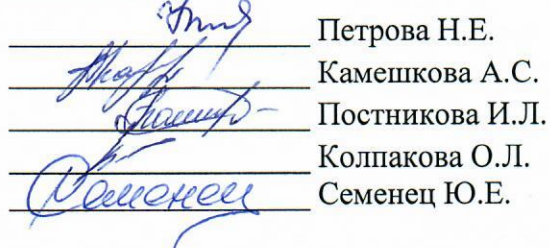 Петрова Н.Е.
Камешкова А.С.
Постникова И.Л.
Колпакова О.Л.
Семенец Ю.Е.